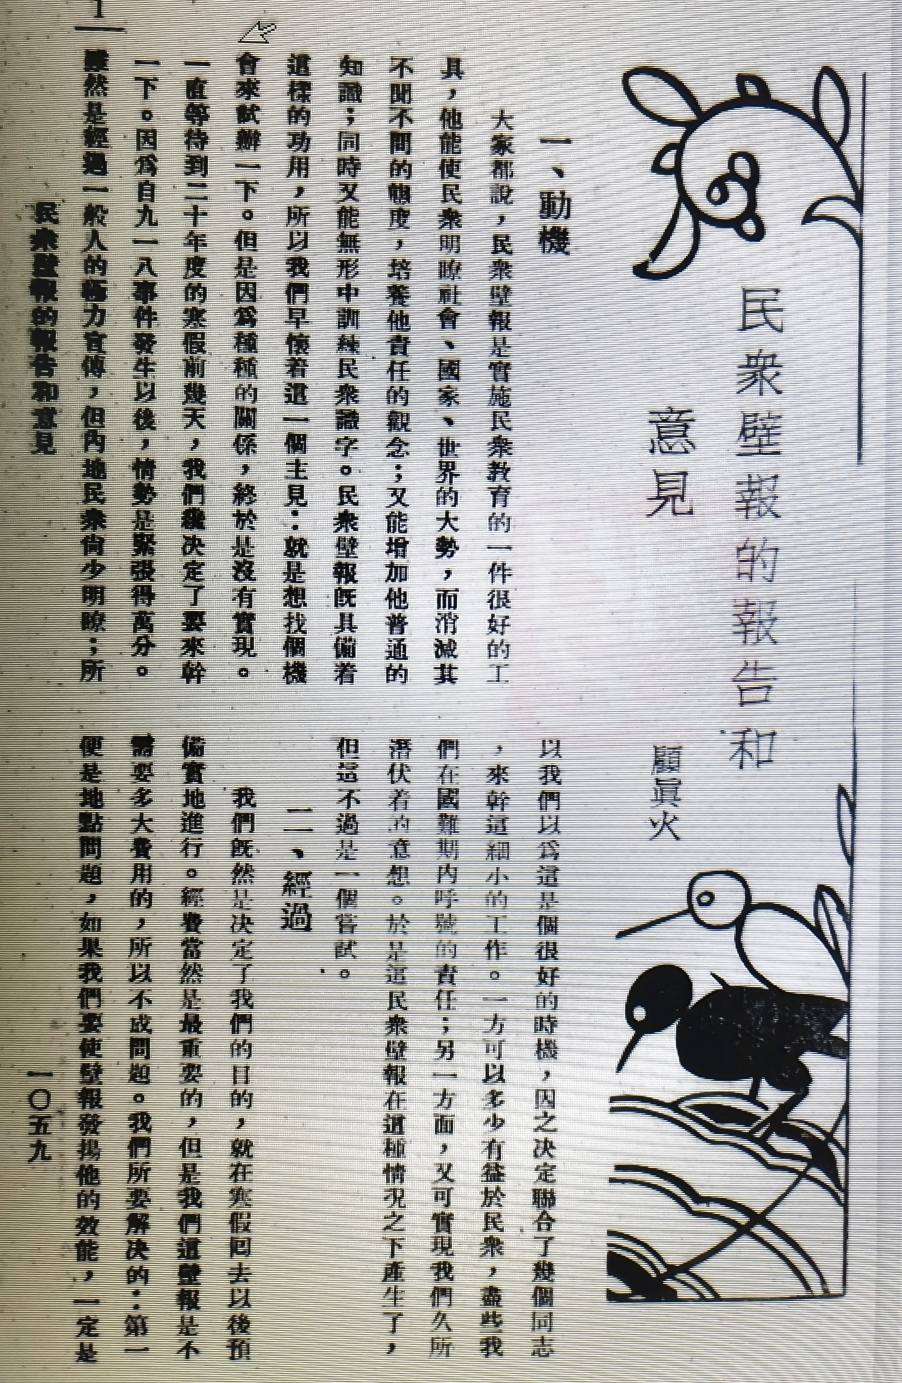 民衆壁報的報告和
意見
顧眞火
一、動機
大家都說，民衆壁報是實施民衆教育的一件很好的工
具，他能使民衆明瞭社會、國家、世界的大勢，而消滅其
不聞不問的態度，培養他責任的觀念；又能增加他普通的
知識；同時又能無形中訓練民衆識字。民衆壁報旣具備着
這樣的功用，所以我們早懷着這一個主見：就是想找個機
會來試辦一下。但是因爲種種的關係，終於是沒有實現。
一直等待到二十年度的寒假前幾天，我們纔决定了要來幹
一下。因爲自九一八事件發生以後，情勢是緊張得萬分。
雖然是經過一般人的極力宣傳，但內地民衆尙少明瞭；所
以我們以爲這是個很好的時機，因之决定聯合了幾個同志
，來幹這細小的工作。一方可以多少有益於民衆，盡些我
們在國難期內呼號的責任；另一方面，又可實現我們久所
潛伏着的意想。於是這民衆壁報在這種情况之下產生了，
但這不過是一個嘗試。
二、經過
我們旣然是决定了我們的目的，就在寒假囘去以後預
備實地進行。經費當然是最重要的，但是我們這壁報是不
需要多大費用的，所以不成問題。我們所要解决的：第一
便是地點問題，如果我們要使壁報發揚他的效能，一定是
民衆壁報的報告和意見
一〇五九
1